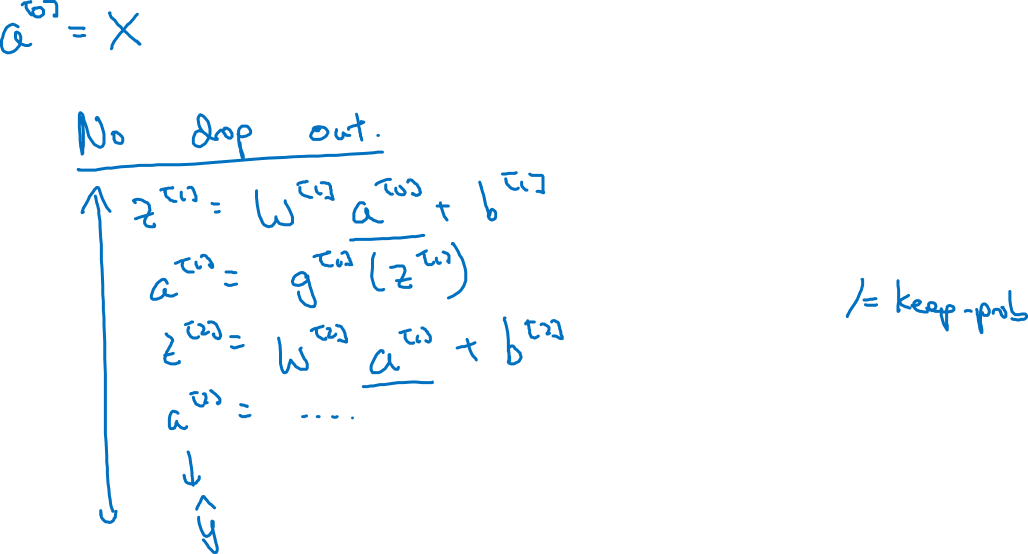 a^[0] = X
No drop out.
z^[1] = W^[1] a^[0] + b^[1]
a^[1] = g^[1] (z^[1])
z^[2] = W^[2] a^[1] + b^[2]
a^[2] = ....
ŷ
/= keep-prob